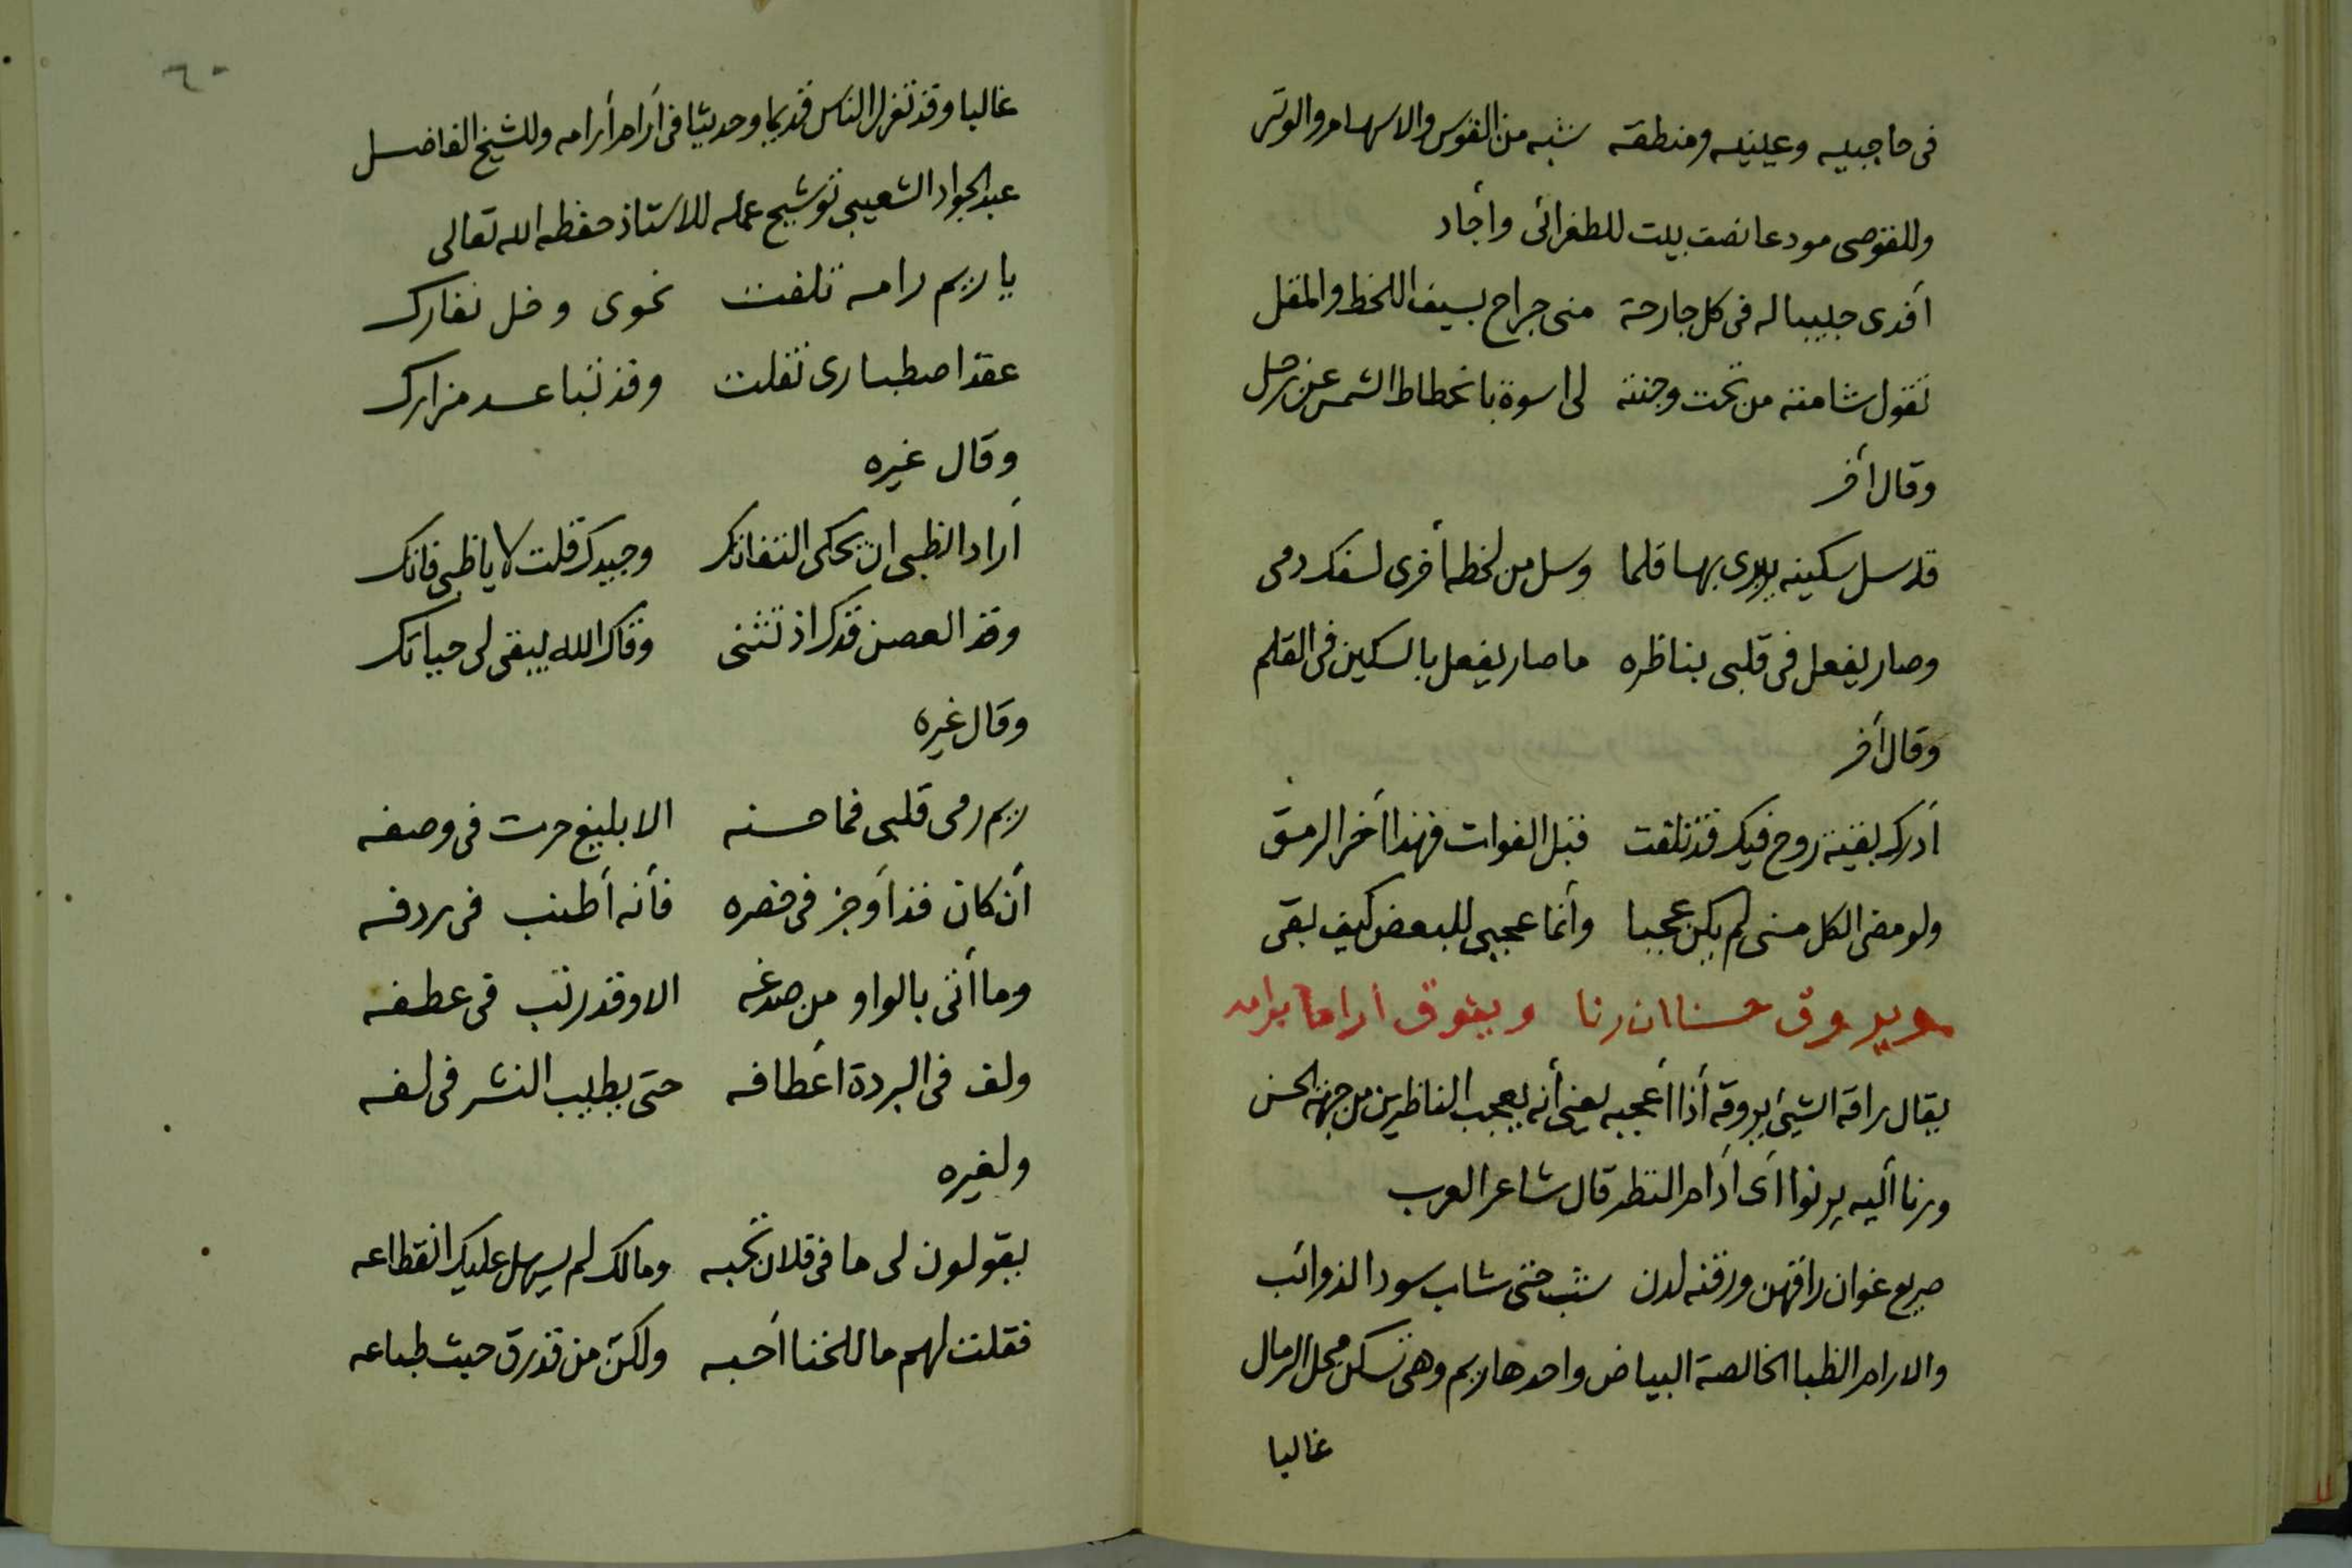 فى حاجبيه وعينيه ومنطقه شبه من القوس والاسهام والوتر
وللقوصى مودعا نصف بيت للطغرائى وأجاد
أفدى حبيبا له فى كل جارحة منى جراح بسيف اللحظ والمقل
تقول شامته من تحت وجنته لى اسوة بانحطاط الشمس عن زحل
وقال أخر
قد سل سكينه يبرى بها قلما وسل من لحظه أخرى لسفك دمى
وصار يفعل فى قلبى بناظره ما صار يفعل بالسكين فى القلم
وقال أخر
أدرك بقية روح فيك قد تلفت قبل الفوات فهذا أخر الرمق
ولو مضى الكل منى لم يكن عجبا وأنما عجبى للبعض كيف بقى
ويروق حسنا ان رنا ويفوق أراما برامه
يقال راقه الشيئ يروقه أذا أعجبه يعنى أنه يعجب الناظرين من جهة الحسن
ورنا أليه يرنوا اى أدام النظر قال شاعر العرب
صريع غوان راقهن ورقنه لدن شب حتى شاب سود الذوائب
والارام الظبا الخالصة البياض واحدها ريم وهى تسكن محل الرمال
غالبا
٦٠
غالبا وقد تغزل الناس قديما وحديثا فى أرام أرامه وللشيخ الفاضل
عبد الجواد الشعيبى توشيح عمله للاستاذ حفظه الله تعالى
يا ريم رامه تلفت نحوى وخل نفارك
عقد اصطبارى تفلت وقد تباعد مزارك
وقال غيره
أراد الظبى ان يحكى التفاتك وجيدك قلت لا يا ظبى فاتك
وقد الغصن قدك اذ تثنى وقاك الله يبقى لى حياتك
وقال غيره
ريم رمى قلبى فما حسنه الا بليغ حرت فى وصفه
أن كان قد أوجز فى خصره فأنه أطنب فى ردفه
وما أتى بالواو من صدغه الا وقد رتب فى عطفه
ولف فى البردة أعطافه حتى يطيب النشر فى لفه
ولغيره
يقولون لى ما فى فلان تحبه ومالك لم يسهل عليك انقطاعه
فقلت لهم ما للخنا أحبه ولكن من قد رق حيث طباعه